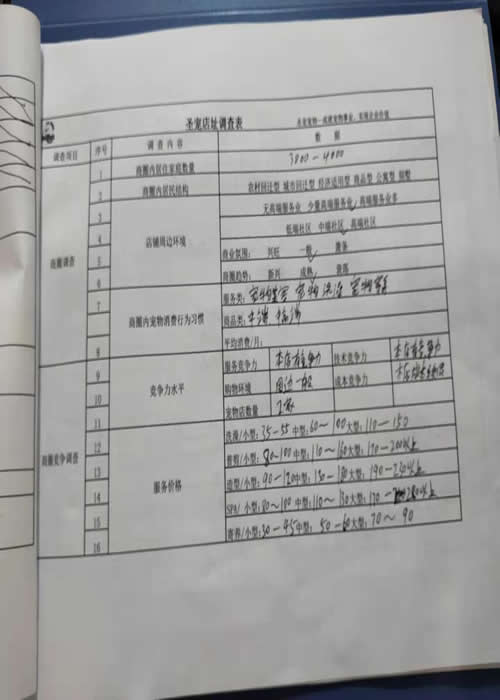 圣宠店址调查表
调查项目 序号 调查内容 数据
1 商圈内居住家庭数量 3000-4000
2 商圈内居民结构 农村回迁型 城市回迁型 经济适用型 商品型 公寓型 别墅
3 店铺周边环境 无高端服务业 少量高端服务业 高端服务业多
4 低端社区 中端社区 高端社区
5 商业氛围: 兴旺 一般 萧条
6 商圈趋势: 新兴 成熟 衰落
商圈调查
7 商圈内宠物消费行为习惯 服务类: 宠物洗澡
商品类:
8 平均消费/月:
9 竞争力水平 服务竞争力 本店有竞争力 技术竞争力 本店有竞争力
10 购物环境 周边一般 成本竞争力
11 宠物店数量 2家
商圈竞争调查
12 服务价格 洗澡/小型:35-55中型:60~100大型:110-150
13 剪剪/小型:80~100中型:110~160大型:170-200以上
14 造型/小型:90-120中型:130-180大型:190-230以上
15 SPA/小型:80~100中型:110-
16 寄养/小型:30-45中型:50-60大型:70~90